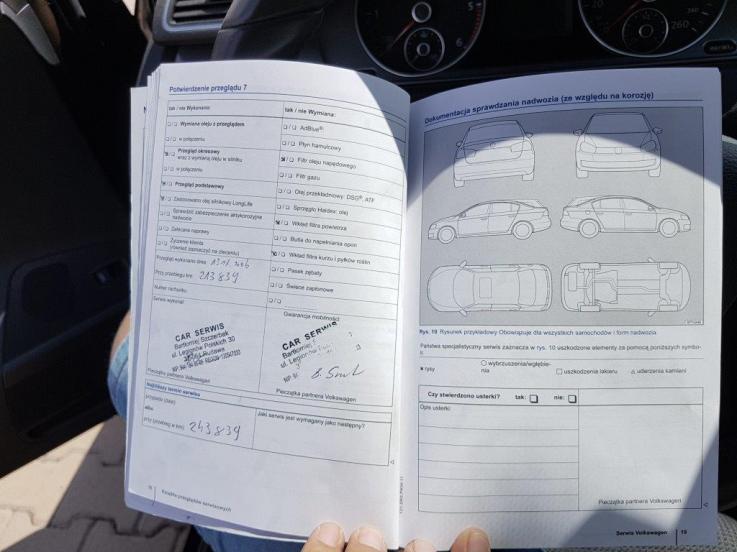 Potwierdzenie przeglądu 7
tak / nie Wykonano:
tak / nie Wymiana:
Wymiana oleju z przeglądem
w połączeniu
Przegląd okresowy
wraz z wymianą oleju w silniku
w połączeniu
Przegląd podstawowy
Zastosowano olej silnikowy LongLife
Sprawdzić zabezpieczenie antykorozyjne
nadwozia
Zalecana naprawy
Życzenie klienta
(również zaznaczyć na zleceniu)
AdBlue®
Płyn hamulcowy
Filtr oleju napędowego
Filtr gazu
Olej przekładniowy: DSG®, ATF
Sprzęgło Haldex: olej
Wkład filtra powietrza
Butla do napełniania opon
Wkład filtra kurzu i pyłków roślin
Pasek zębaty
Świece zapłonowe
Przegląd wykonano dnia
Przy przebiegu km: 213 839
Numer rachunku:
Serwis wykonał:
CAR SERWIS
Bartłomiej Szczerbak
ul. Legionów Polskich 30
Pieczątka partnera Volkswagen
Gwarancja mobilności
CAR SERWIS
Bartłomiej
ul. Legionów
Pieczątka partnera Volkswagen
Najbliższy termin serwisu
przypada (data):
albo
przy (przebieg w km): 243 839
Jaki serwis jest wymagany jako następny?
Książka przeglądów serwisowych
Dokumentacja sprawdzania nadwozia (ze względu na korozję)
Rys. 10 Rysunek przykładowy Obowiązuje dla wszystkich samochodów i form nadwozia
Państwa specjalistyczny serwis zaznacza w rys. 10 uszkodzone elementy za pomocą poniższych symbo-
li:
x rysy
wybrzuszenia/wgłębie-
nia
uszkodzenia lakieru
uderzenia kamieni
Czy stwierdzono usterki? tak: nie:
Opis usterki:
Pieczątka partnera Volkswagen
Serwis Volkswagen
5
6
240
260